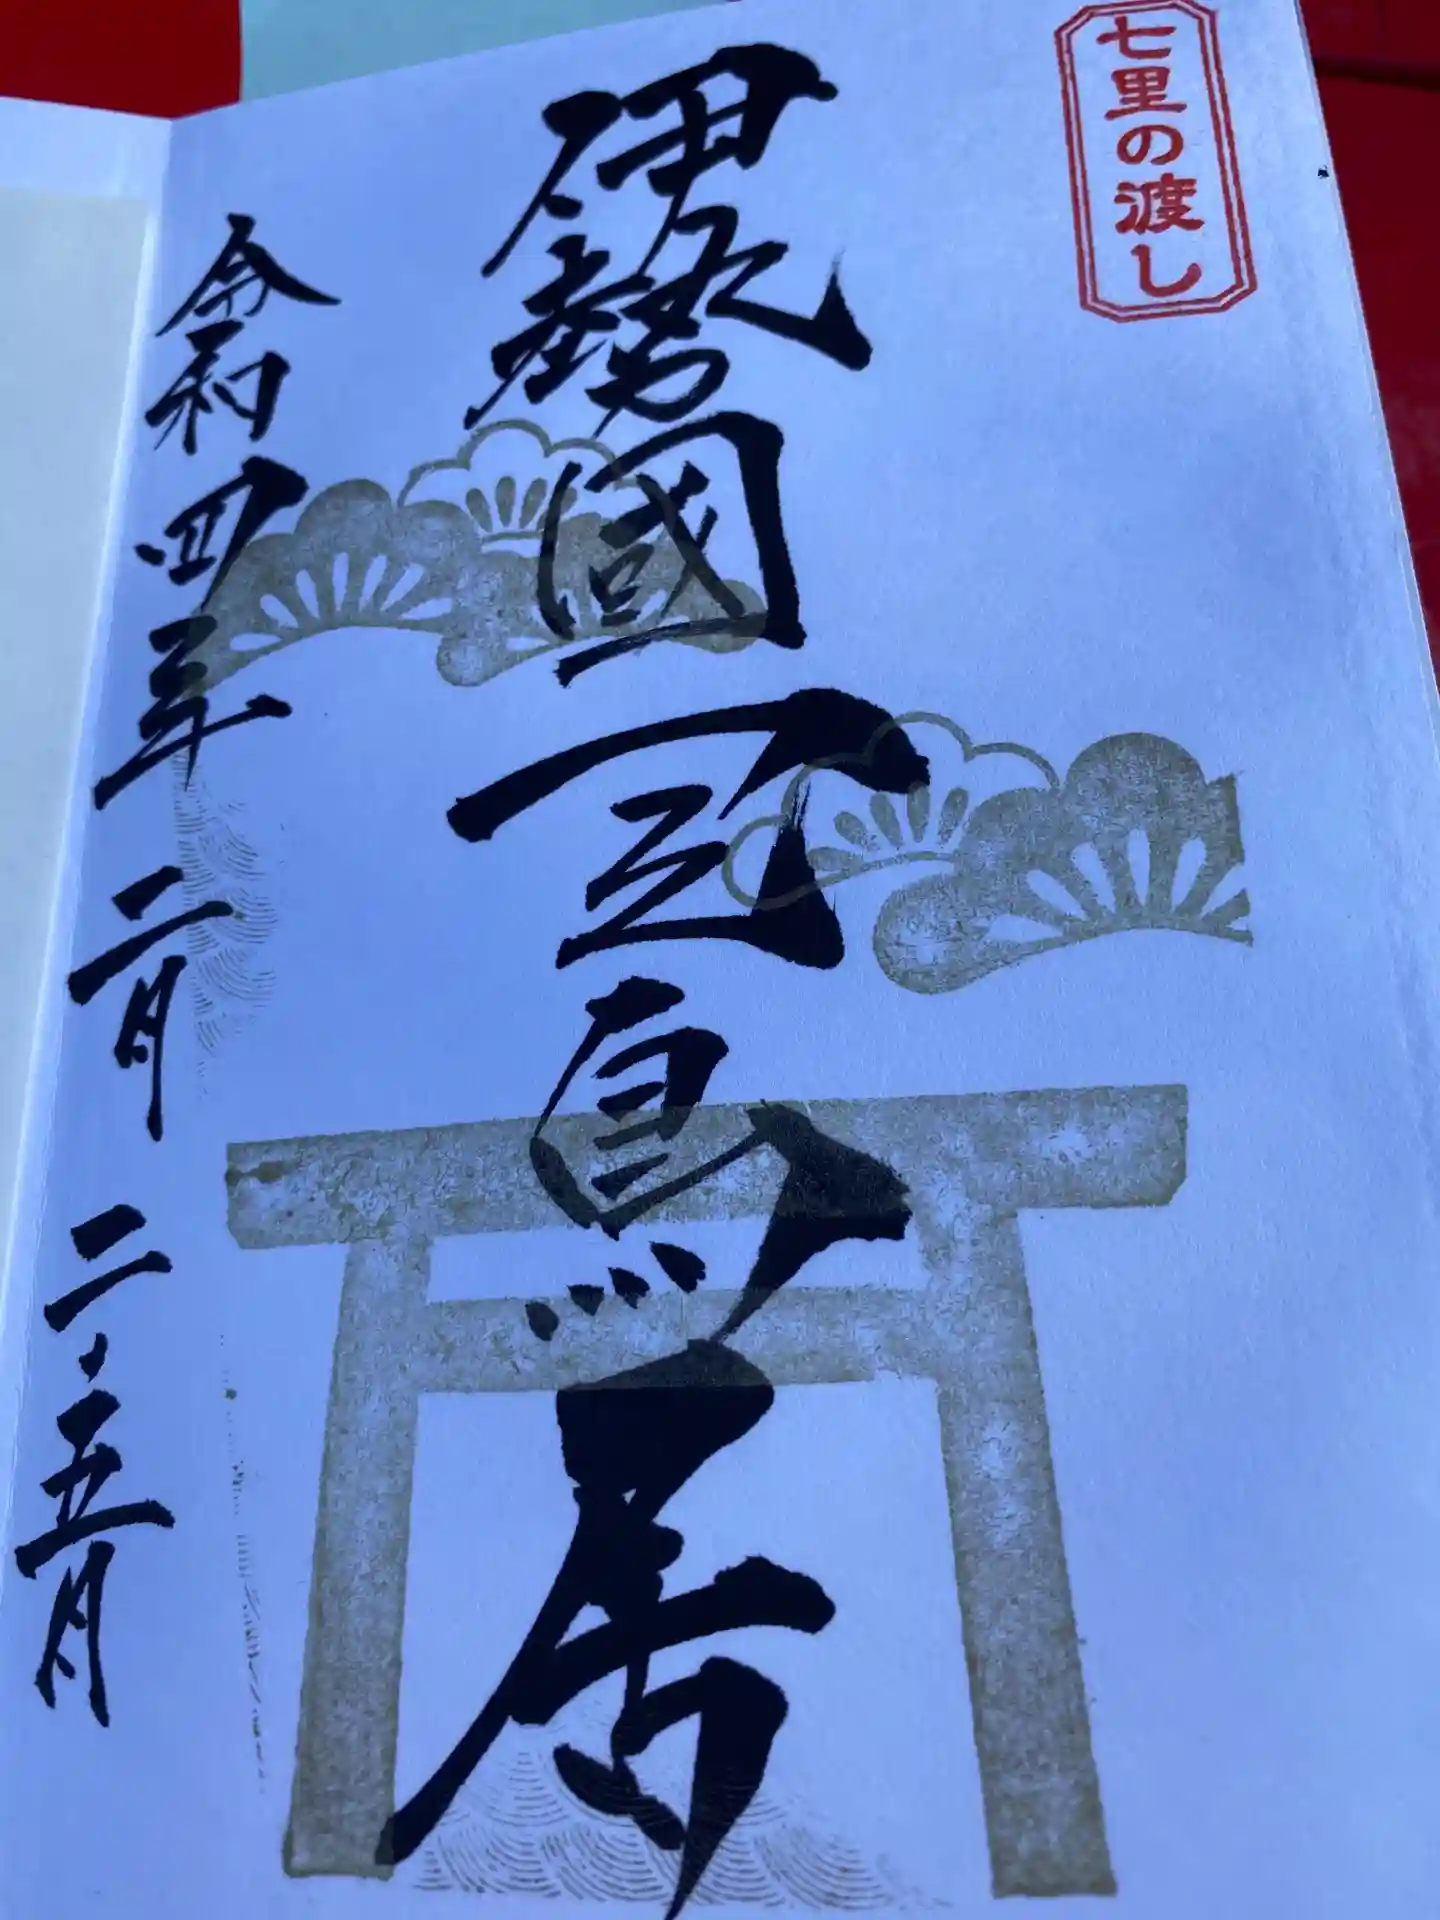 七里の渡し
伊勢國一鳥居
令和四年二月二・五月